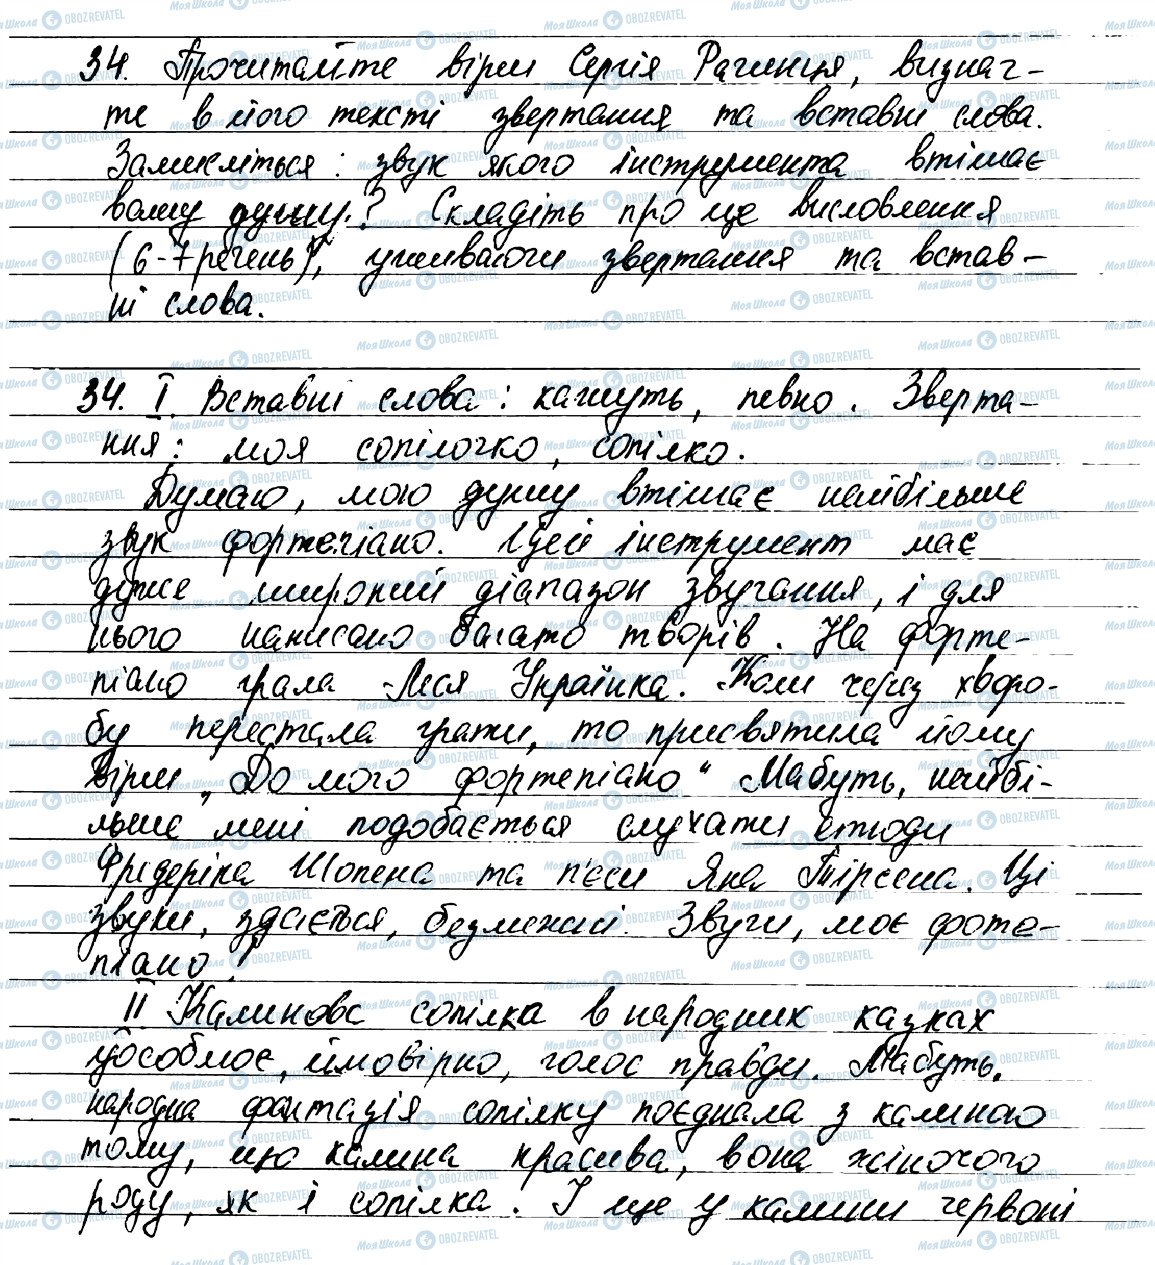 34. Прочитайте вірш Сергія Рачинця, визнач-
те в його тексті звертання та вставні слова.
Замисліться: звук якого інструмента втішає
вашу душу? Складіть про це висловлення
(6-7 речень), уживаючи звертання та встав-
ні слова.
34. I. Вставні слова: кажуть, певно. Зверта-
ння: моя сопілочко, сопілко.
Думаю, мою душу втішає найбільше
звук фортепіано. Цей інструмент має
дуже широкий діапазон звучання, і для
нього написано багато творів. На форте-
піано грала Леся Українка. Коли через хворо-
бу перестала грати, то присвятила йому
вірш „До мого фортепіано" Мабуть, найбі-
льше мені подобається слухати етюди
Фридеріка Шопена та п'єси Яна Тірсена. Ці
звуки, здається, безмежні. Звучи, моє форте-
піано!
II Калинова сопілка в народних казках
уособлює, ймовірно, голос правди. Мабуть,
народна фантазія сопілку поєднала з калиною
тому, що калина красива, вона жіночого
роду, як і сопілка. І ще у калини червоні